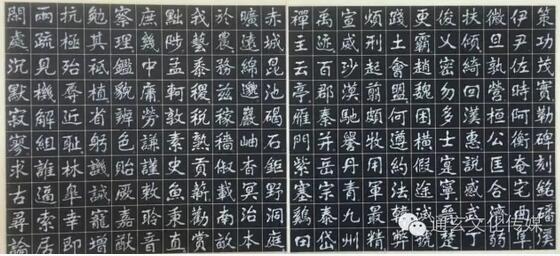 策功茂實勒碑刻銘磻溪
伊尹佐時阿衡奄宅曲阜
微旦孰營桓公匡合濟弱
扶傾綺回漢惠說感武丁
俊乂密勿多士寔寧晉楚
更霸趙魏困橫假途滅虢
踐土會盟何遵約法韓弊
煩刑起翦頗牧用軍最精
宣威沙漠馳譽丹青九州
禹迹百郡秦并嶽宗泰岱
禪主云亭雁門紫塞雞田
赤城昆池碣石鉅野洞庭
曠遠綿邈巖岫杳冥治本
於農務茲稼穡俶載南畝
我藝黍稷稅熟貢新勸賞
黜陟孟軻敦素史魚秉直
庶幾中庸勞謙謹敕聆音
察理鑑貌辨色貽厥嘉猷
勉其祗植省躬譏誡寵增
抗極殆辱近恥林皋幸即
兩疏見機解組誰逼索居
閑處沉默寂寥求古尋論
通玄文化传媒